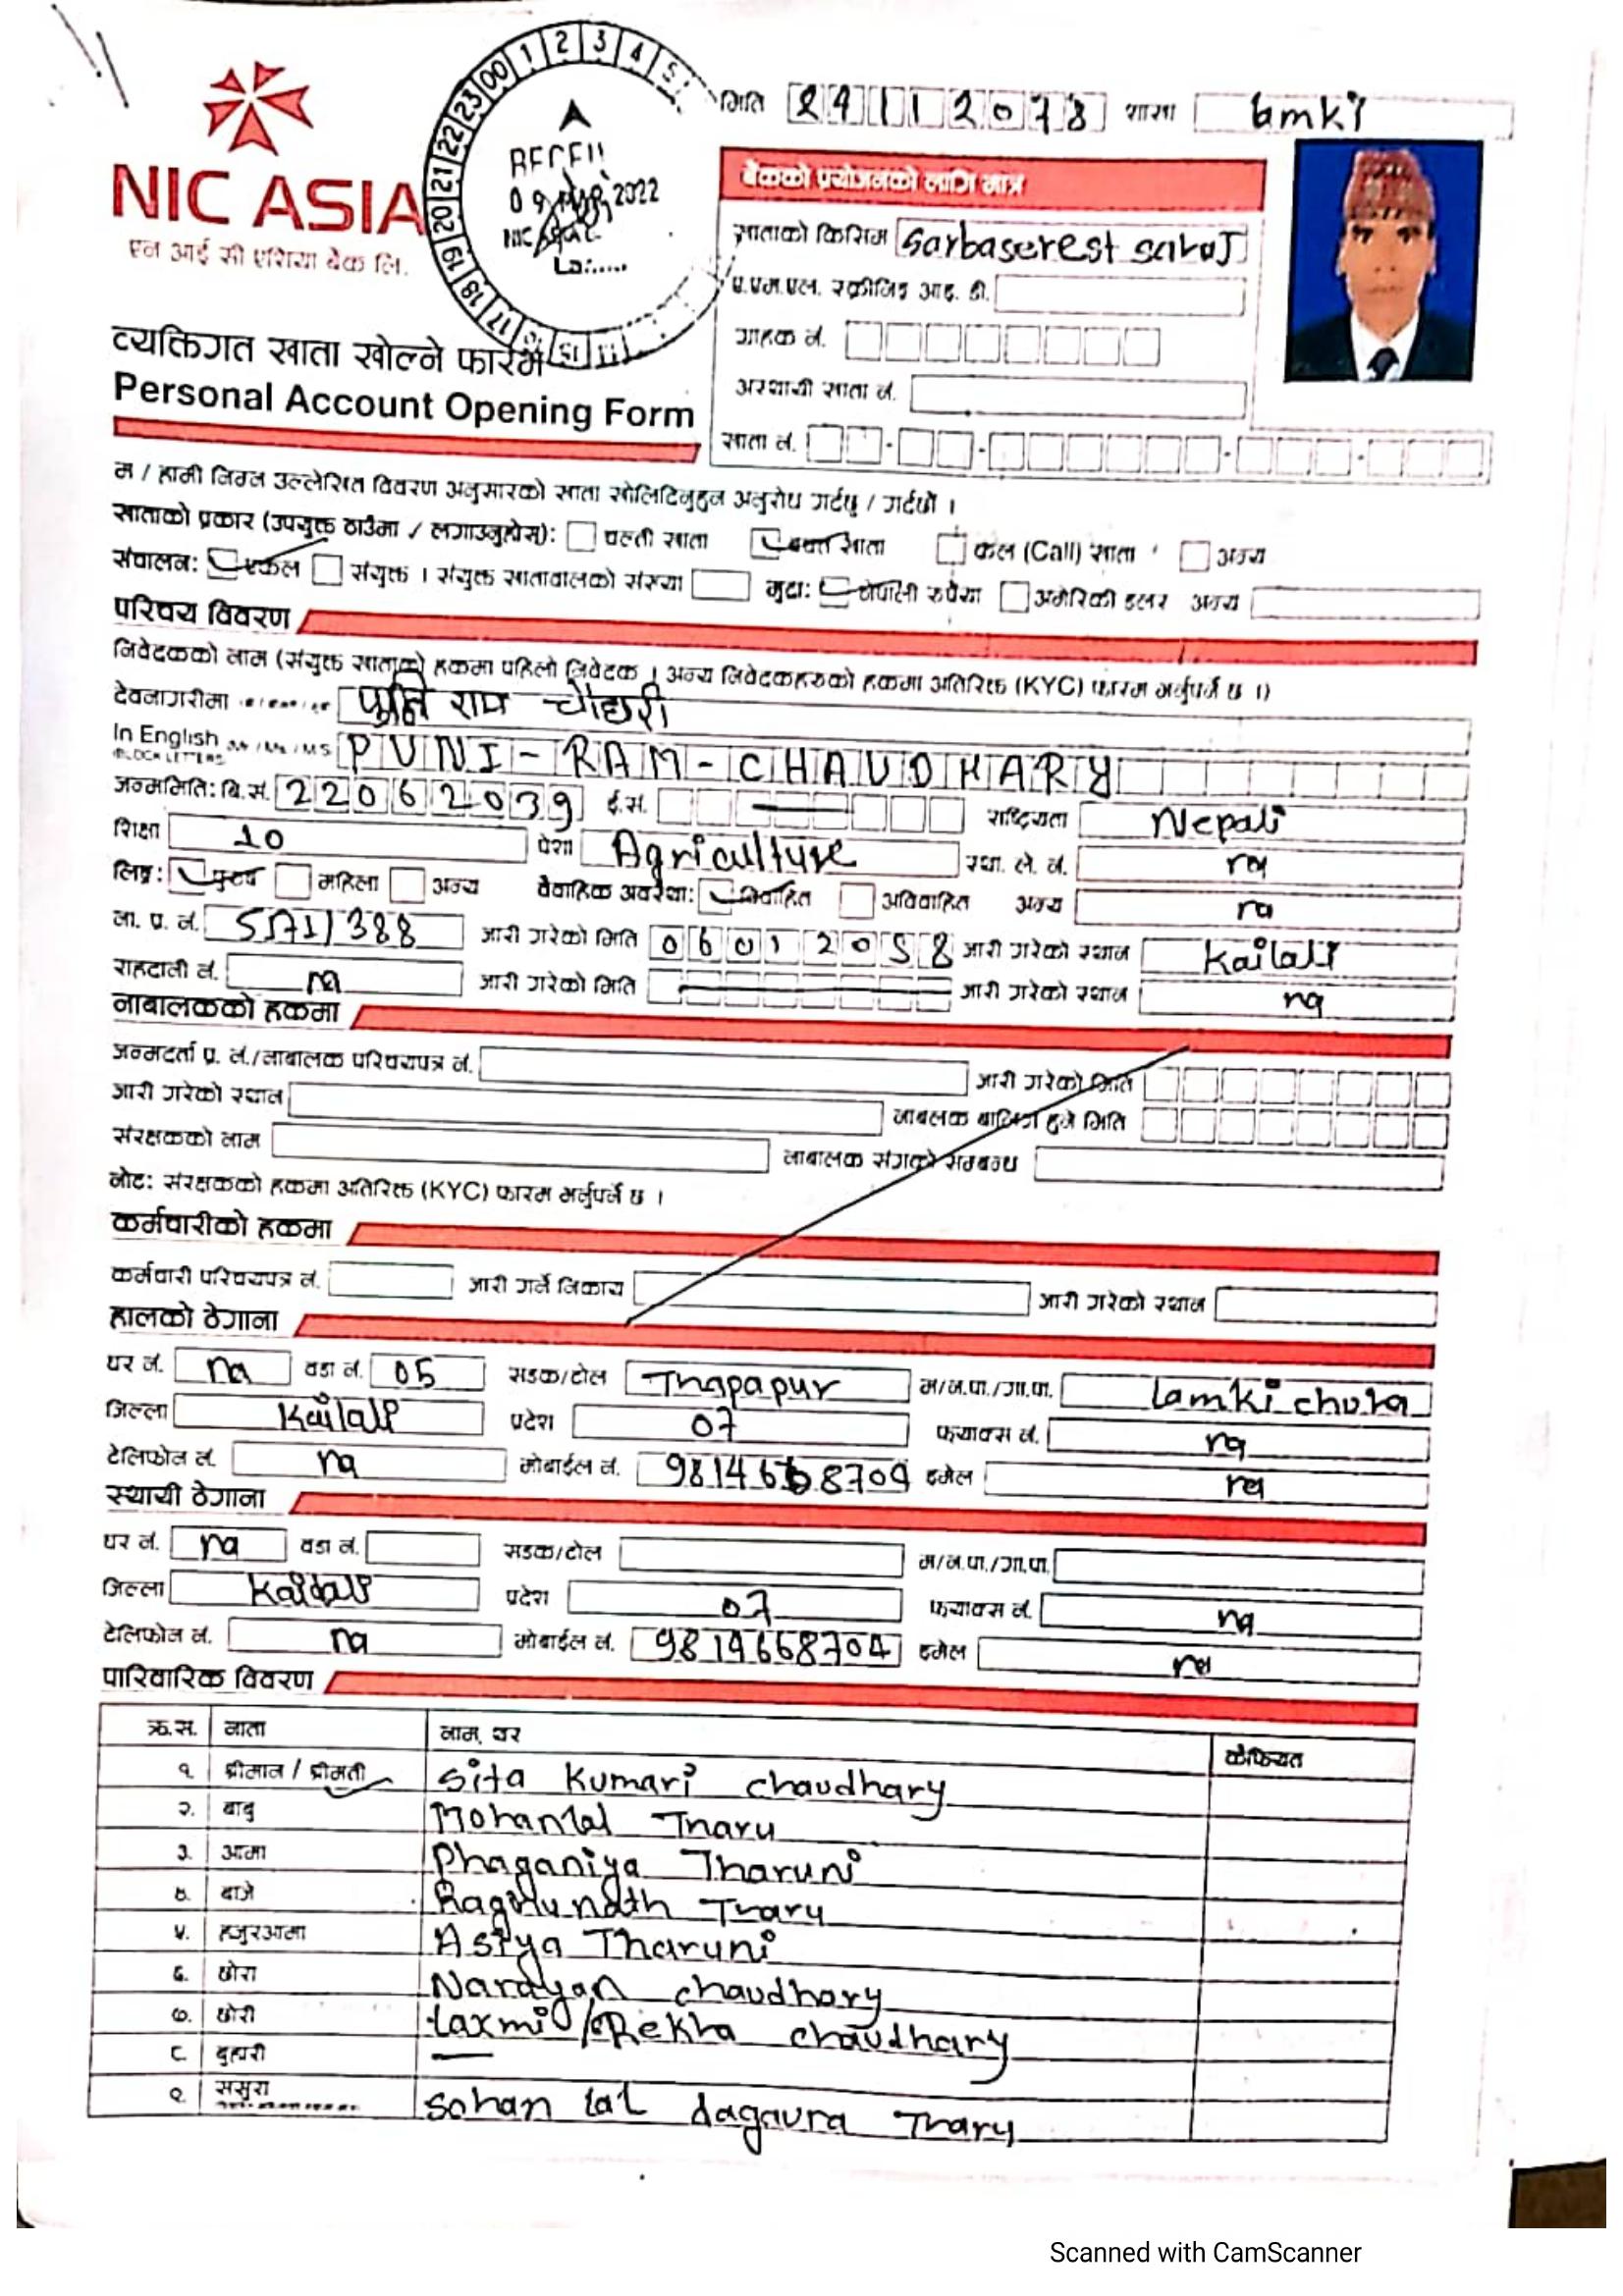 मिति 24112078 शाखा lamki
NIC ASIA
एन आई सी एशिया बैंक लि.
00 1 2 3 4 5
23 22 21 20 19 18 17
09 2022
बैंकको प्रयोजनको लागि मात्र
खाताको किसिम Sarbaserest saral
ए.एम.एल. स्क्रीनिङ्ग आइ. डी.
ग्राहक नं.
अस्थायी खाता नं.
खाता नं.
व्यक्तिगत खाता खोल्ने फारम
Personal Account Opening Form
म / हामी निम्न उल्लेखित विवरण अनुसारको खाता खोलिदिनुहुन अनुरोध गर्दछु / गर्दछौं ।
खाताको प्रकार (उपयुक्त ठाउँमा ✓ लगाउनुहोस्): चल्ती खाता बचत खाता कल (Call) खाता अन्य
संचालन: एकल संयुक्त । संयुक्त खातावालको संख्या मुद्रा: नेपाली रुपैया अमेरिकी डलर अन्य
परिचय विवरण
निवेदकको नाम (संयुक्त खाताको हकमा पहिलो निवेदक । अन्य निवेदकहरुको हकमा अतिरिक्त (KYC) फारम भर्नुपर्ने छ ।)
देवनागरीमा राम चौधरी
In English Mr / Mrs / M.S PUNI-RAM-CHAUDHARY
BLOCK LETTERS
जन्ममिति: बि.सं. 22062039 ई.सं. राष्ट्रियता Nepali
शिक्षा 10 पेशा Agriculture स्था. ले. नं. na
लिङ्ग: पुरुष महिला अन्य वैवाहिक अवस्था: विवाहित अविवाहित अन्य na
ना. प्र. नं. 5171/388 जारी गरेको मिति 06012058 जारी गरेको स्थान Kailali
राहदानी नं. na जारी गरेको मिति जारी गरेको स्थान na
नाबालकको हकमा
जन्मदर्ता प्र. नं./नाबालक परिचयपत्र नं. जारी गरेको मिति
जारी गरेको स्थान नाबालक बालिग हुने मिति
संरक्षकको नाम नाबालक संगको सम्बन्ध
नोट: संरक्षकको हकमा अतिरिक्त (KYC) फारम भर्नुपर्ने छ ।
कर्मचारीको हकमा
कर्मचारी परिचयपत्र नं. जारी गर्ने निकाय जारी गरेको स्थान
हालको ठेगाना
घर नं. na वडा नं. 05 सडक/टोल Thapapur म/न.पा./गा.पा. lamki chuha
जिल्ला Kailali प्रदेश 07 फ्याक्स नं. na
टेलिफोन नं. na मोबाईल नं. 9814668704 इमेल na
स्थायी ठेगाना
घर नं. na वडा नं. सडक/टोल म/न.पा./गा.पा.
जिल्ला Kailali प्रदेश 07 फ्याक्स नं. na
टेलिफोन नं. na मोबाईल नं. 9814668704 इमेल na
पारिवारिक विवरण
क्र.स. नाता नाम, थर कैफियत
१. श्रीमान / श्रीमती Sita Kumari chaudhary
२. बाबु Mohanlal Tharu
३. आमा Phaganiya Tharuni
४. बाजे Raghunath Tharu
५. हजुरआमा Asiya Tharuni
६. छोरा Narayan chaudhary
७. छोरी laxmi / Rekha chaudhary
८. बुहारी
९. ससुरा sohan lal dagaura Tharu
Scanned with CamScanner